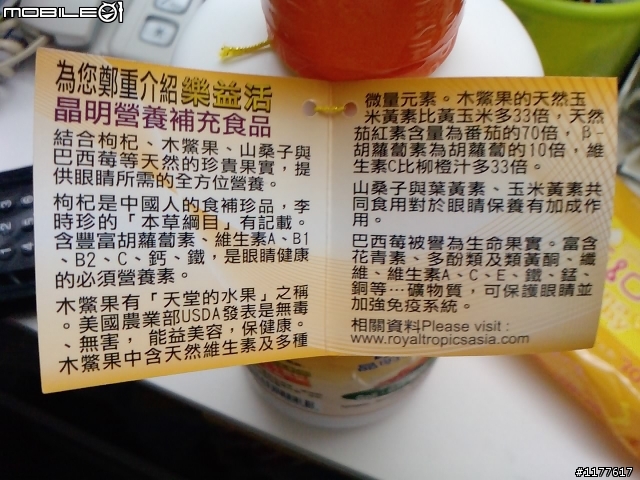 MOBILE01
為您鄭重介紹樂益活
晶明營養補充食品
結合枸杞、木鱉果、山桑子與
巴西莓等天然的珍貴果實，提
供眼睛所需的全方位營養。
枸杞是中國人的食補珍品，李
時珍的「本草綱目」有記載。
含豐富胡蘿蔔素、維生素A、B1
、B2、C、鈣、鐵，是眼睛健康
的必須營養素。
木鱉果有「天堂的水果」之稱
。美國農業部USDA發表是無毒
、無害， 能益美容，保健康。
木鱉果中含天然維生素及多種
微量元素。木鱉果的天然玉
米黃素比黃玉米多33倍，天然
茄紅素含量為番茄的70倍，β-
胡蘿蔔素為胡蘿蔔的10倍，維
生素C比柳橙汁多33倍。
山桑子與葉黃素、玉米黃素共
同食用對於眼睛保養有加成作
用。
巴西莓被譽為生命果實。富含
花青素、多酚類及類黃酮、纖
維、維生素A、C、E、鐵、錳、
銅等…礦物質，可保護眼睛並
加強免疫系統。
相關資料Please visit :
www.royaltropicsasia.com
#1177617